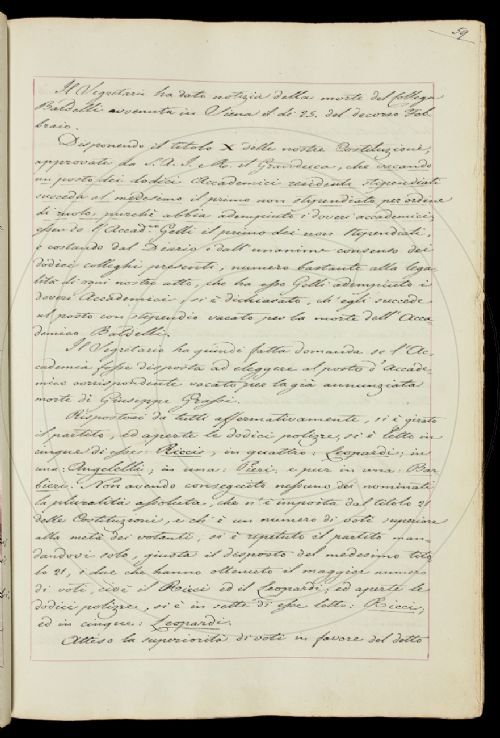 59
Il Segretario ha dato notizia della morte del Collega
Baldelli avvenuta in Siena il dì 25. del decorso Feb-
braio.
Disponendo il titolo X delle nostre Costituzione,
approvate da S. A. I. e R. il Granduca, che vacando
un posto dei dodici Accademici residenti stipendiati
succeda al medesimo il primo non stipendiato per ordine
di ruolo, purchè abbia adempiuto i doveri accademici;
essendo l'Accad.co Gelli il primo dei non stipendiati,
e costando dal Diario e dall'unanime consenso dei
dodici colleghi presenti, numero bastante alla lega-
lità di ogni nostro atto, che ha esso Gelli adempiuto i
doveri Accademici si è dichiarato, ch'egli succede
al posto con stipendio vacato per la morte dell'Acca-
demico Baldelli.
Il Segretario ha quindi fatta domanda se l'Ac-
cademia fosse disposta ad eleggere al posto d'Accade-
mico corrispondente vacato per la già annunziata
morte di Giuseppe Grassi.
Rispostosi da tutti affermativamente, si è girato
il partito, ed aperte le dodici polizze, si è letto in
cinque di esse: Ricci; in quattro: Leopardi; in
una: Angelelli; in una: Pezi: e pur in una: Bar
bieri. Non avendo conseguito nessuno dei nominati
la pluralità assoluta, che n'è imposta dal titolo 21
delle Costituzioni, e ch'è un numero di voti superiore
alla metà dei votanti, si è ripetuto il partito man-
dandovi solo, giusta il disposto del medesimo tito
lo 21, i due che hanno ottenuto il maggior numero
di voti, cioè il Ricci ed il Leopardi; ed aperte le
dodici polizze, si è in sette di esse letto: Ricci;
ed in cinque: Leopardi.
Attesa la superiorità di voti in favore del detto